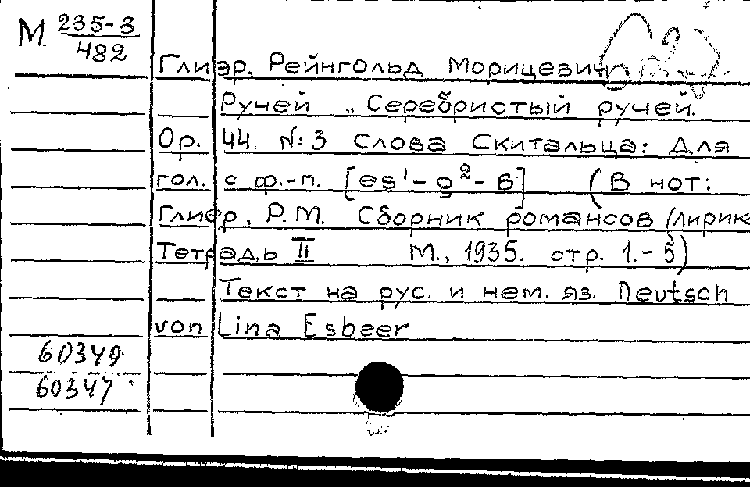 М 235-3
482
Глиэр, Рейнгольд Морицевич
Ручей „ Серебристый ручей.
Op. 44 №3 Слова Скитальца: Для
гол. с ф.-п. [es¹-g²-B] (В нот:
Глиэр, Р.М. Сборник романсов (лирик
Тетрадь II М., 1935. стр. 1.-5)
Текст на рус. и нем. яз. Deutsch
von Lina Esbeer
60349
60347